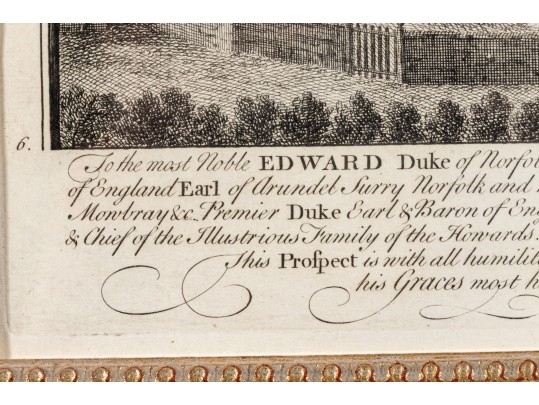 6.
To the most Noble EDWARD Duke of Norfo
of England Earl of Arundel Surry Norfolk and
Mowbray &c. Premier Duke Earl & Baron of En
& Chief of the Illustrious Family of the Howards.
This Prospect is with all humili
his Graces most h